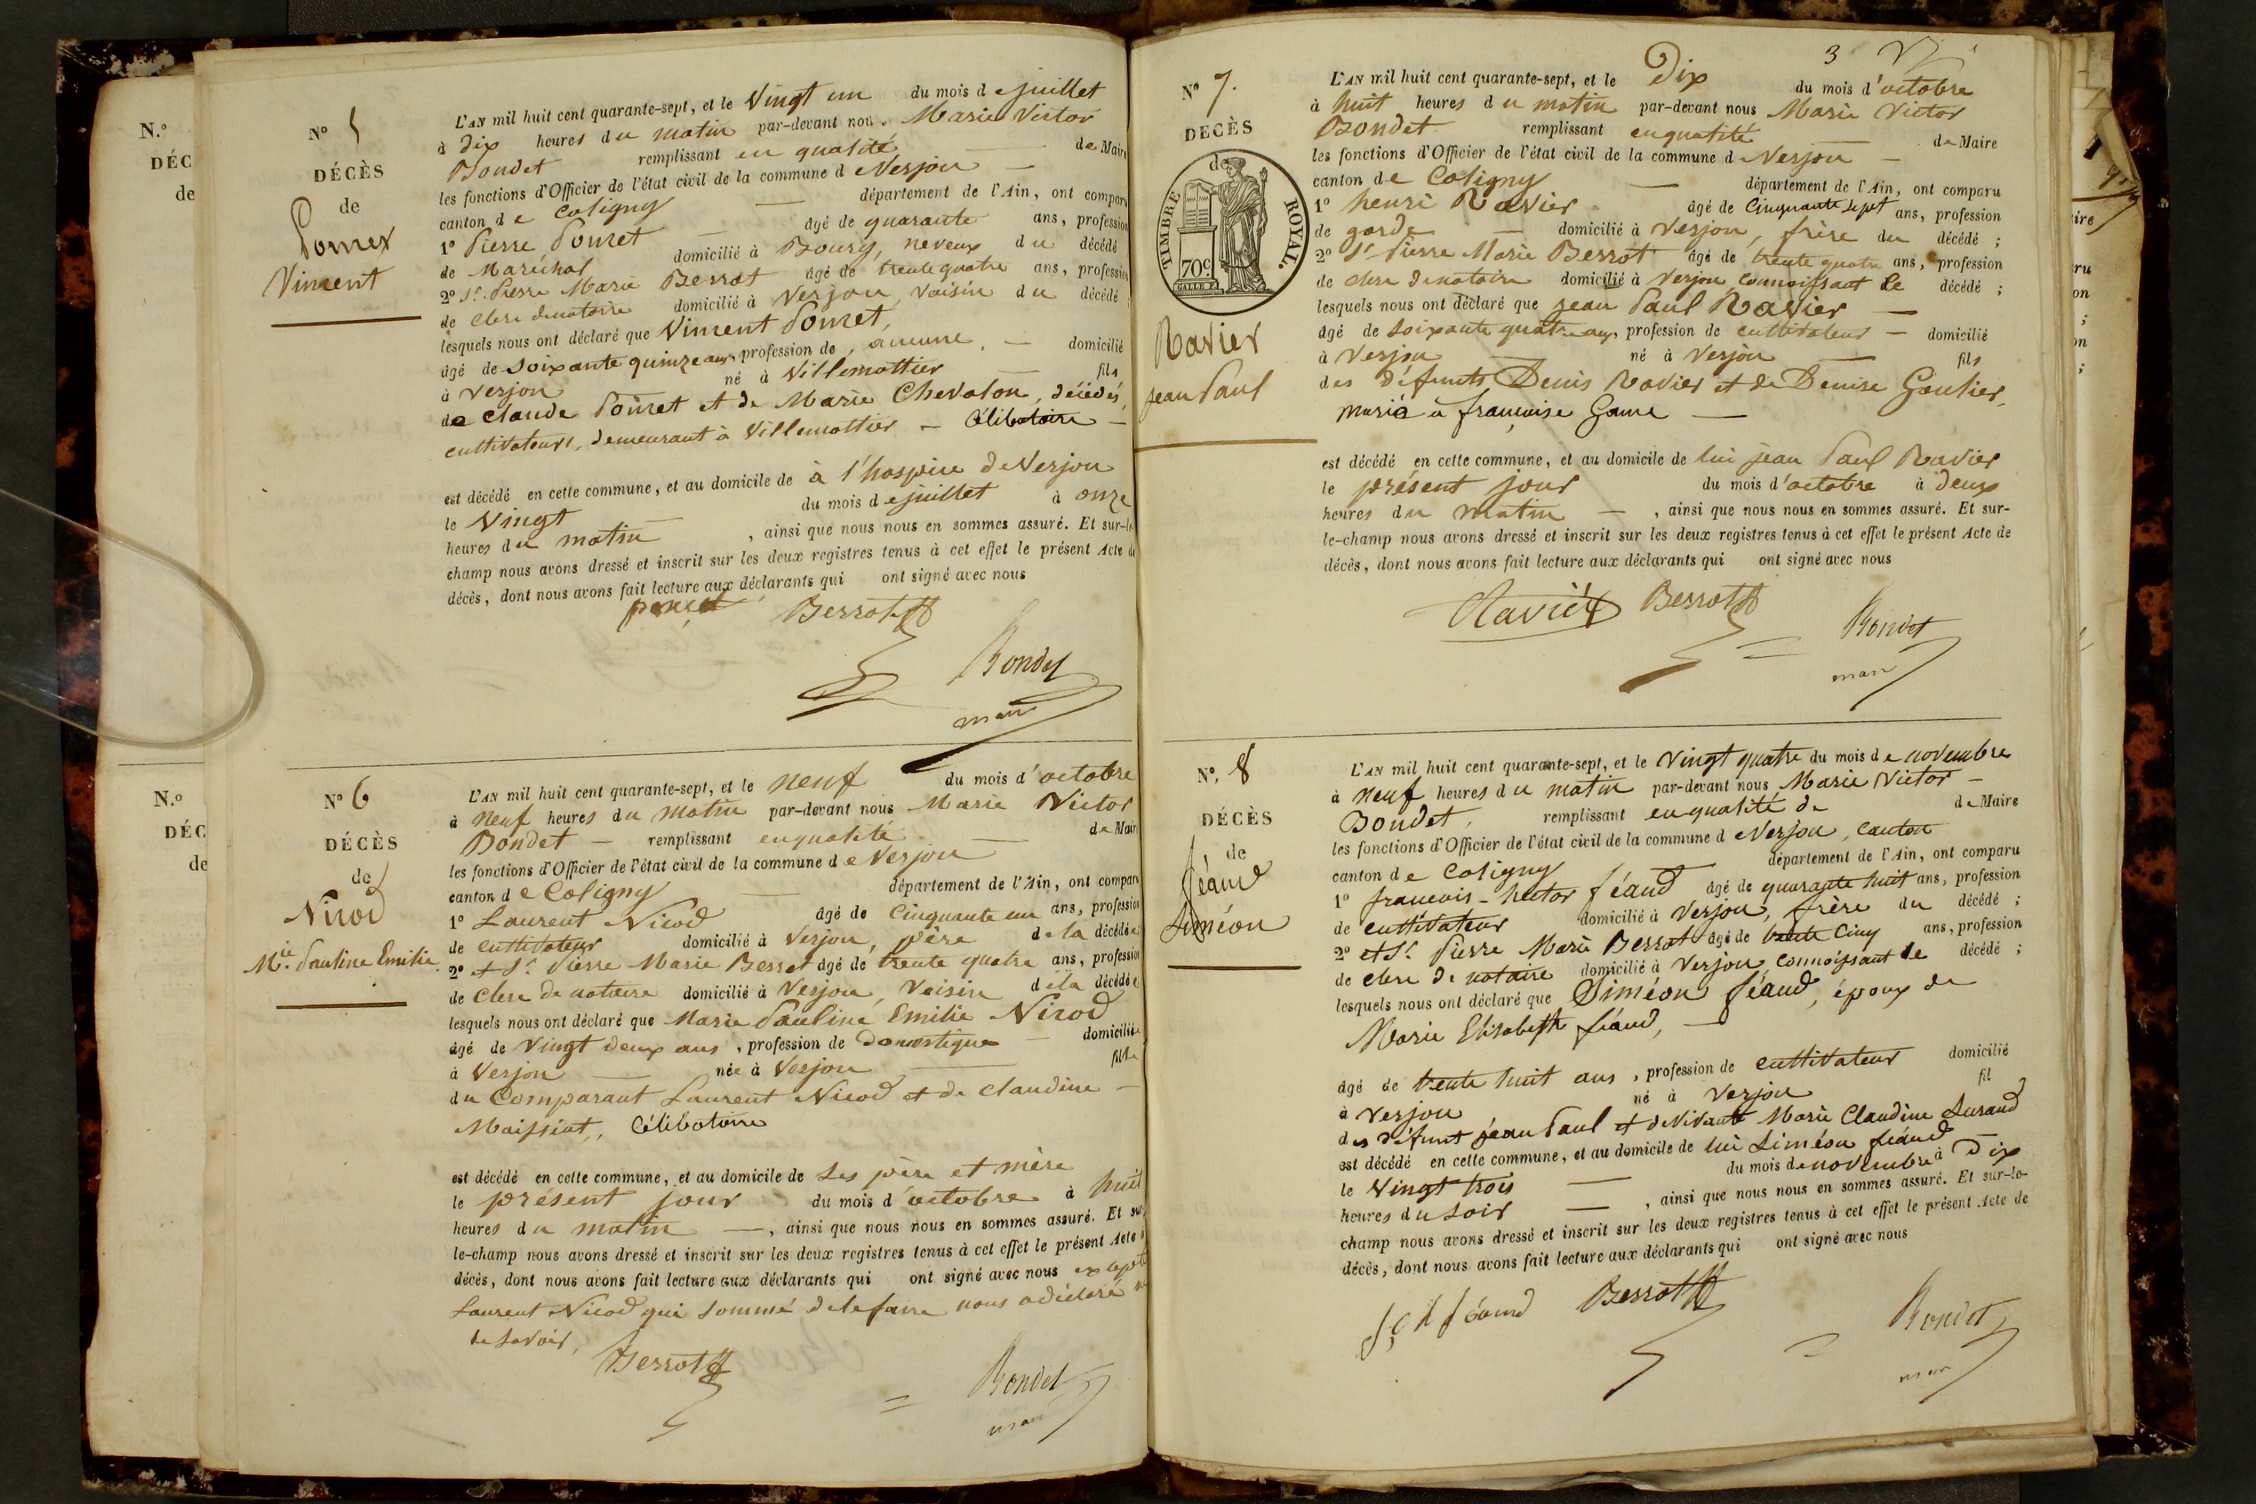 N.º
DÉC
de
N.º
DÉC
de
Nº 5
DÉCÈS
de
Poncet
Vincent
L'AN mil huit cent quarante-sept, et le Vingt un du mois de juillet
à dix heures du matin par-devant nou. Marie Victor
Bondet remplissant en qualité de Maire
les fonctions d'Officier de l'état civil de la commune de Verjon
canton de Coligny département de l'Ain, ont comparu
1º Pierre Poncet âgé de quarante ans, profession
de Maréchal domicilié à Bourg, neveux du décédé
2º Sr. Pierre Marie Berrot âgé de trente quatre ans, profession
de clerc de notaire domicilié à Verjon, voisin du décédé ;
lesquels nous ont déclaré que Vincent Poncet,
âgé de soixante quinze ans, profession de aucune, domicilié
à Verjon né à Villemottier fils
de Claude Poncet et de Marie Chevalon, décédés,
cultivateurs, demeurant à Villemottier - Célibataire -
est décédé en cette commune, et au domicile de à l'hospice de Verjon
le Vingt du mois de juillet à onze
heures du matin , ainsi que nous nous en sommes assuré. Et sur-le
champ nous avons dressé et inscrit sur les deux registres tenus à cet effet le présent Acte de
décès, dont nous avons fait lecture aux déclarants qui ont signé avec nous
poncet Berrot
Bondet
maire
Nº 6
DÉCÈS
de
Nicod
Mie. Pauline Emilie
L'AN mil huit cent quarante-sept, et le neuf du mois d'octobre
à neuf heures du matin par-devant nous Marie Victor
Bondet - remplissant en qualité de Maire
les fonctions d'Officier de l'état civil de la commune de Verjon
canton de Coligny département de l'Ain, ont comparu
1º Laurent Nicod âgé de cinquante un ans, profession
de cultivateur domicilié à Verjon, père de la décédée
2º et Sr. Pierre Marie Berrot âgé de trente quatre ans, profession
de clerc de notaire domicilié à Verjon, Voisin de la décédée
lesquels nous ont déclaré que Marie Pauline Emilie Nicod
âgé de vingt deux ans, profession de domestique - domiciliée
à Verjon née à Verjon fille
du Comparant Laurent Nicod et de Claudine -
Maissiat, Célibataire
est décédé en cette commune, et au domicile de ses père et mère
le présent jour du mois d'octobre à huit
heures du matin -, ainsi que nous nous en sommes assuré. Et sur
le-champ nous avons dressé et inscrit sur les deux registres tenus à cet effet le présent Acte
décès, dont nous avons fait lecture aux déclarants qui ont signé avec nous excepté
Laurent Nicod qui sommé de le faire nous a déclaré ne
le savoir,
Berrot
Bondet
maire
3
Nº 7.
DÉCÈS
de
TIMBRE ROYAL.
70c
Ravier
Jean Paul
L'AN mil huit cent quarante-sept, et le Dix du mois d'octobre
à huit heures du matin par-devant nous Marie Victor
Bondet remplissant en qualité de Maire
les fonctions d'Officier de l'état civil de la commune de Verjon -
canton de Coligny département de l'Ain, ont comparu
1º henri Ravier âgé de cinquante sept ans, profession
de garde domicilié à Verjon, frère du décédé ;
2º Sr. Pierre Marie Berrot âgé de trente quatre ans, profession
de clerc de notaire domicilié à Verjon, connoissant le décédé ;
lesquels nous ont déclaré que jean Paul Ravier -
âgé de soixante quatre ans, profession de cultivateur - domicilié
à Verjon né à Verjon fils
des défunts Denis Ravier et de Denise Goulier,
marié à françoise Game
est décédé en cette commune, et au domicile de lui jean Paul Ravier
le présent jour du mois d'octobre à deux
heures du matin - , ainsi que nous nous en sommes assuré. Et sur-
le-champ nous avons dressé et inscrit sur les deux registres tenus à cet effet le présent Acte de
décès, dont nous avons fait lecture aux déclarants qui ont signé avec nous
Ravier Berrot
Bondet
maire
Nº. 8
DÉCÈS
de
féaud
Siméon
L'AN mil huit cent quarante-sept, et le vingt quatre du mois de novembre
à neuf heures du matin par-devant nous Marie Victor -
Bondet, remplissant en qualité de de Maire
les fonctions d'Officier de l'état civil de la commune de Verjon, canton
canton de Coligny département de l'Ain, ont comparu
1º francois-hector féaud âgé de quarante huit ans, profession
de cultivateur domicilié à Verjon, frère du décédé ;
2º et Sr. Pierre Marie Berrot âgé de trente cinq ans, profession
de clerc de notaire domicilié à Verjon, connoissant le décédé ;
lesquels nous ont déclaré que Siméon féaud, époux de
Marie Elisabeth féaud, -
âgé de trente huit ans, profession de cultivateur domicilié
à Verjon né à Verjon fil
des défunt jean Paul et de vivante Marie Claudine Durand
est décédé en cette commune, et au domicile de lui Siméon féaud
le Vingt trois du mois de novembre à Dix
heures du soir - , ainsi que nous nous en sommes assuré. Et sur-le-
champ nous avons dressé et inscrit sur les deux registres tenus à cet effet le présent Acte de
décès, dont nous avons fait lecture aux déclarants qui ont signé avec nous
f,c h féaud Berrot
Bondet
maire